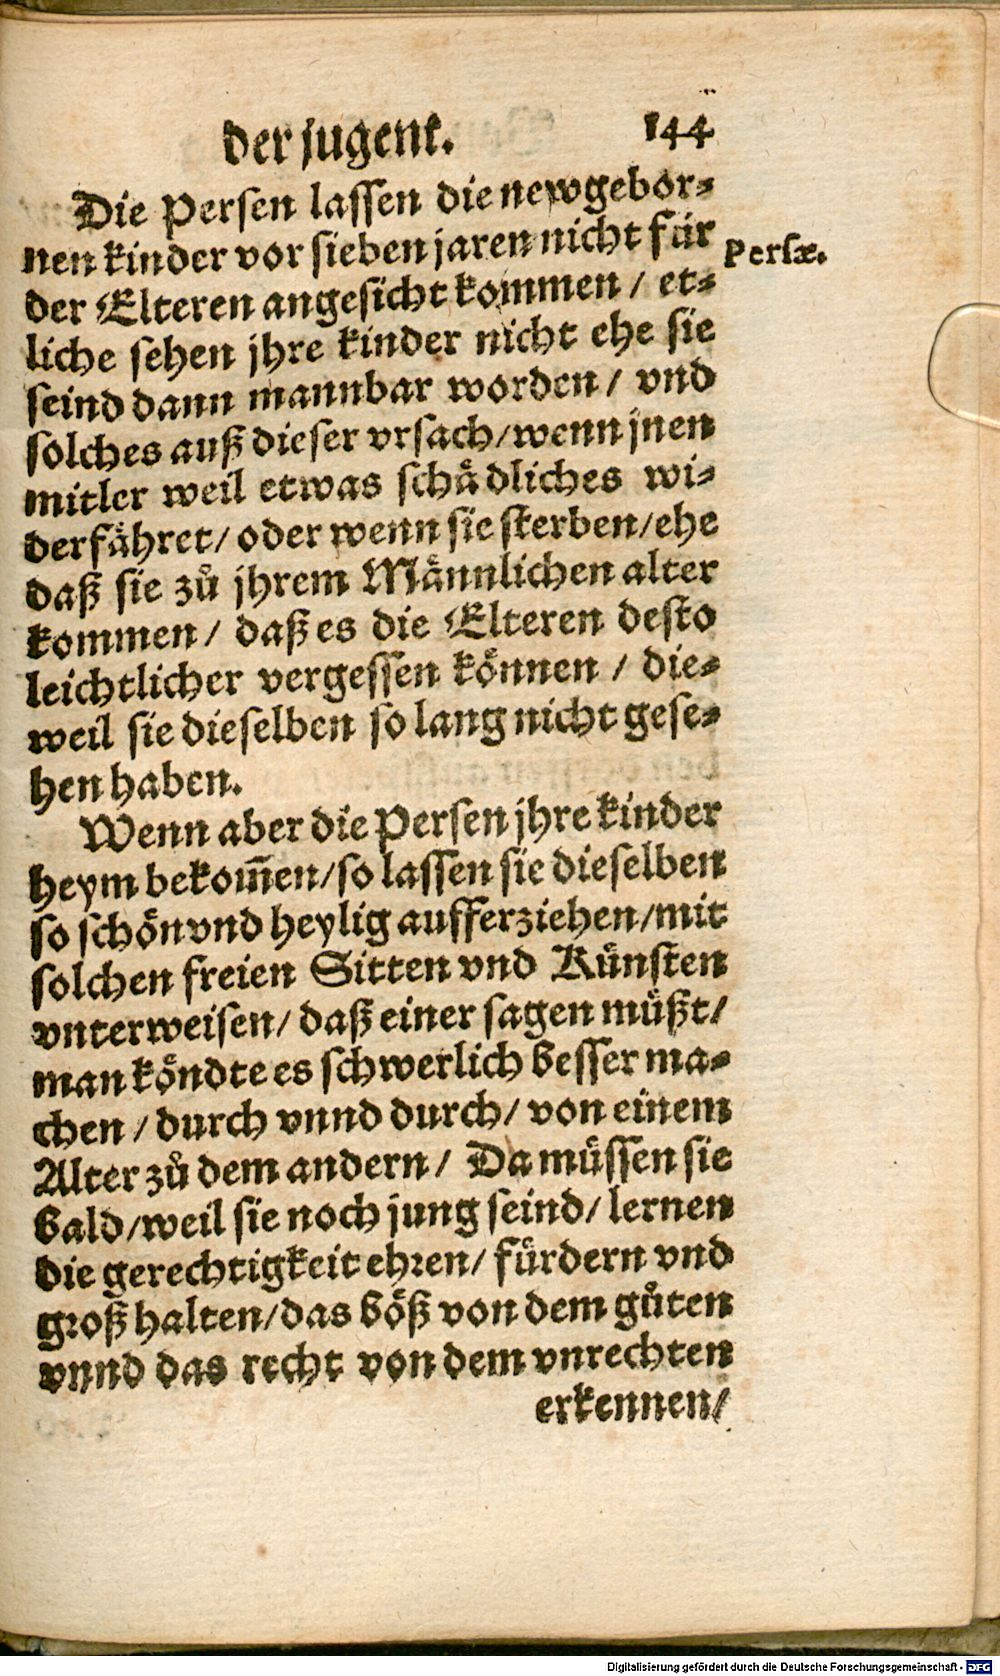 der jugent. 144
Die Persen lassen die newgebor⸗
nen kinder vor sieben jaren nicht für
Persæ.
der Elteren angesicht kommen / et⸗
liche sehen jhre kinder nicht ehe sie
seind dann mannbar worden / vnd
solches auß dieser vrsach / wenn jnen
mitler weil etwas schådliches wi⸗
derfåhret / oder wenn sie sterben / ehe
daß sie zů jhrem Männlichen alter
kommen / daß es die Elteren desto
leichtlicher vergessen können / die⸗
weil sie dieselben so lang nicht gese⸗
hen haben.
Wenn aber die Persen jhre kinder
heym bekom̃en / so lassen sie dieselben
so schön vnd heylig aufferziehen / mit
solchen freien Sitten vnd Künsten
vnterweisen / daß einer sagen müßt /
man köndte es schwerlich besser ma⸗
chen / durch vnnd durch / von einem
Alter zů dem andern / Da müssen sie
bald / weil sie noch jung seind / lernen
die gerechtigkeit ehren / fürdern vnd
groß halten / das böß von dem gůten
vnnd das recht von dem vnrechten
erkennen /
Digitalisierung gefördert durch die Deutsche Forschungsgemeinschaft - DFG